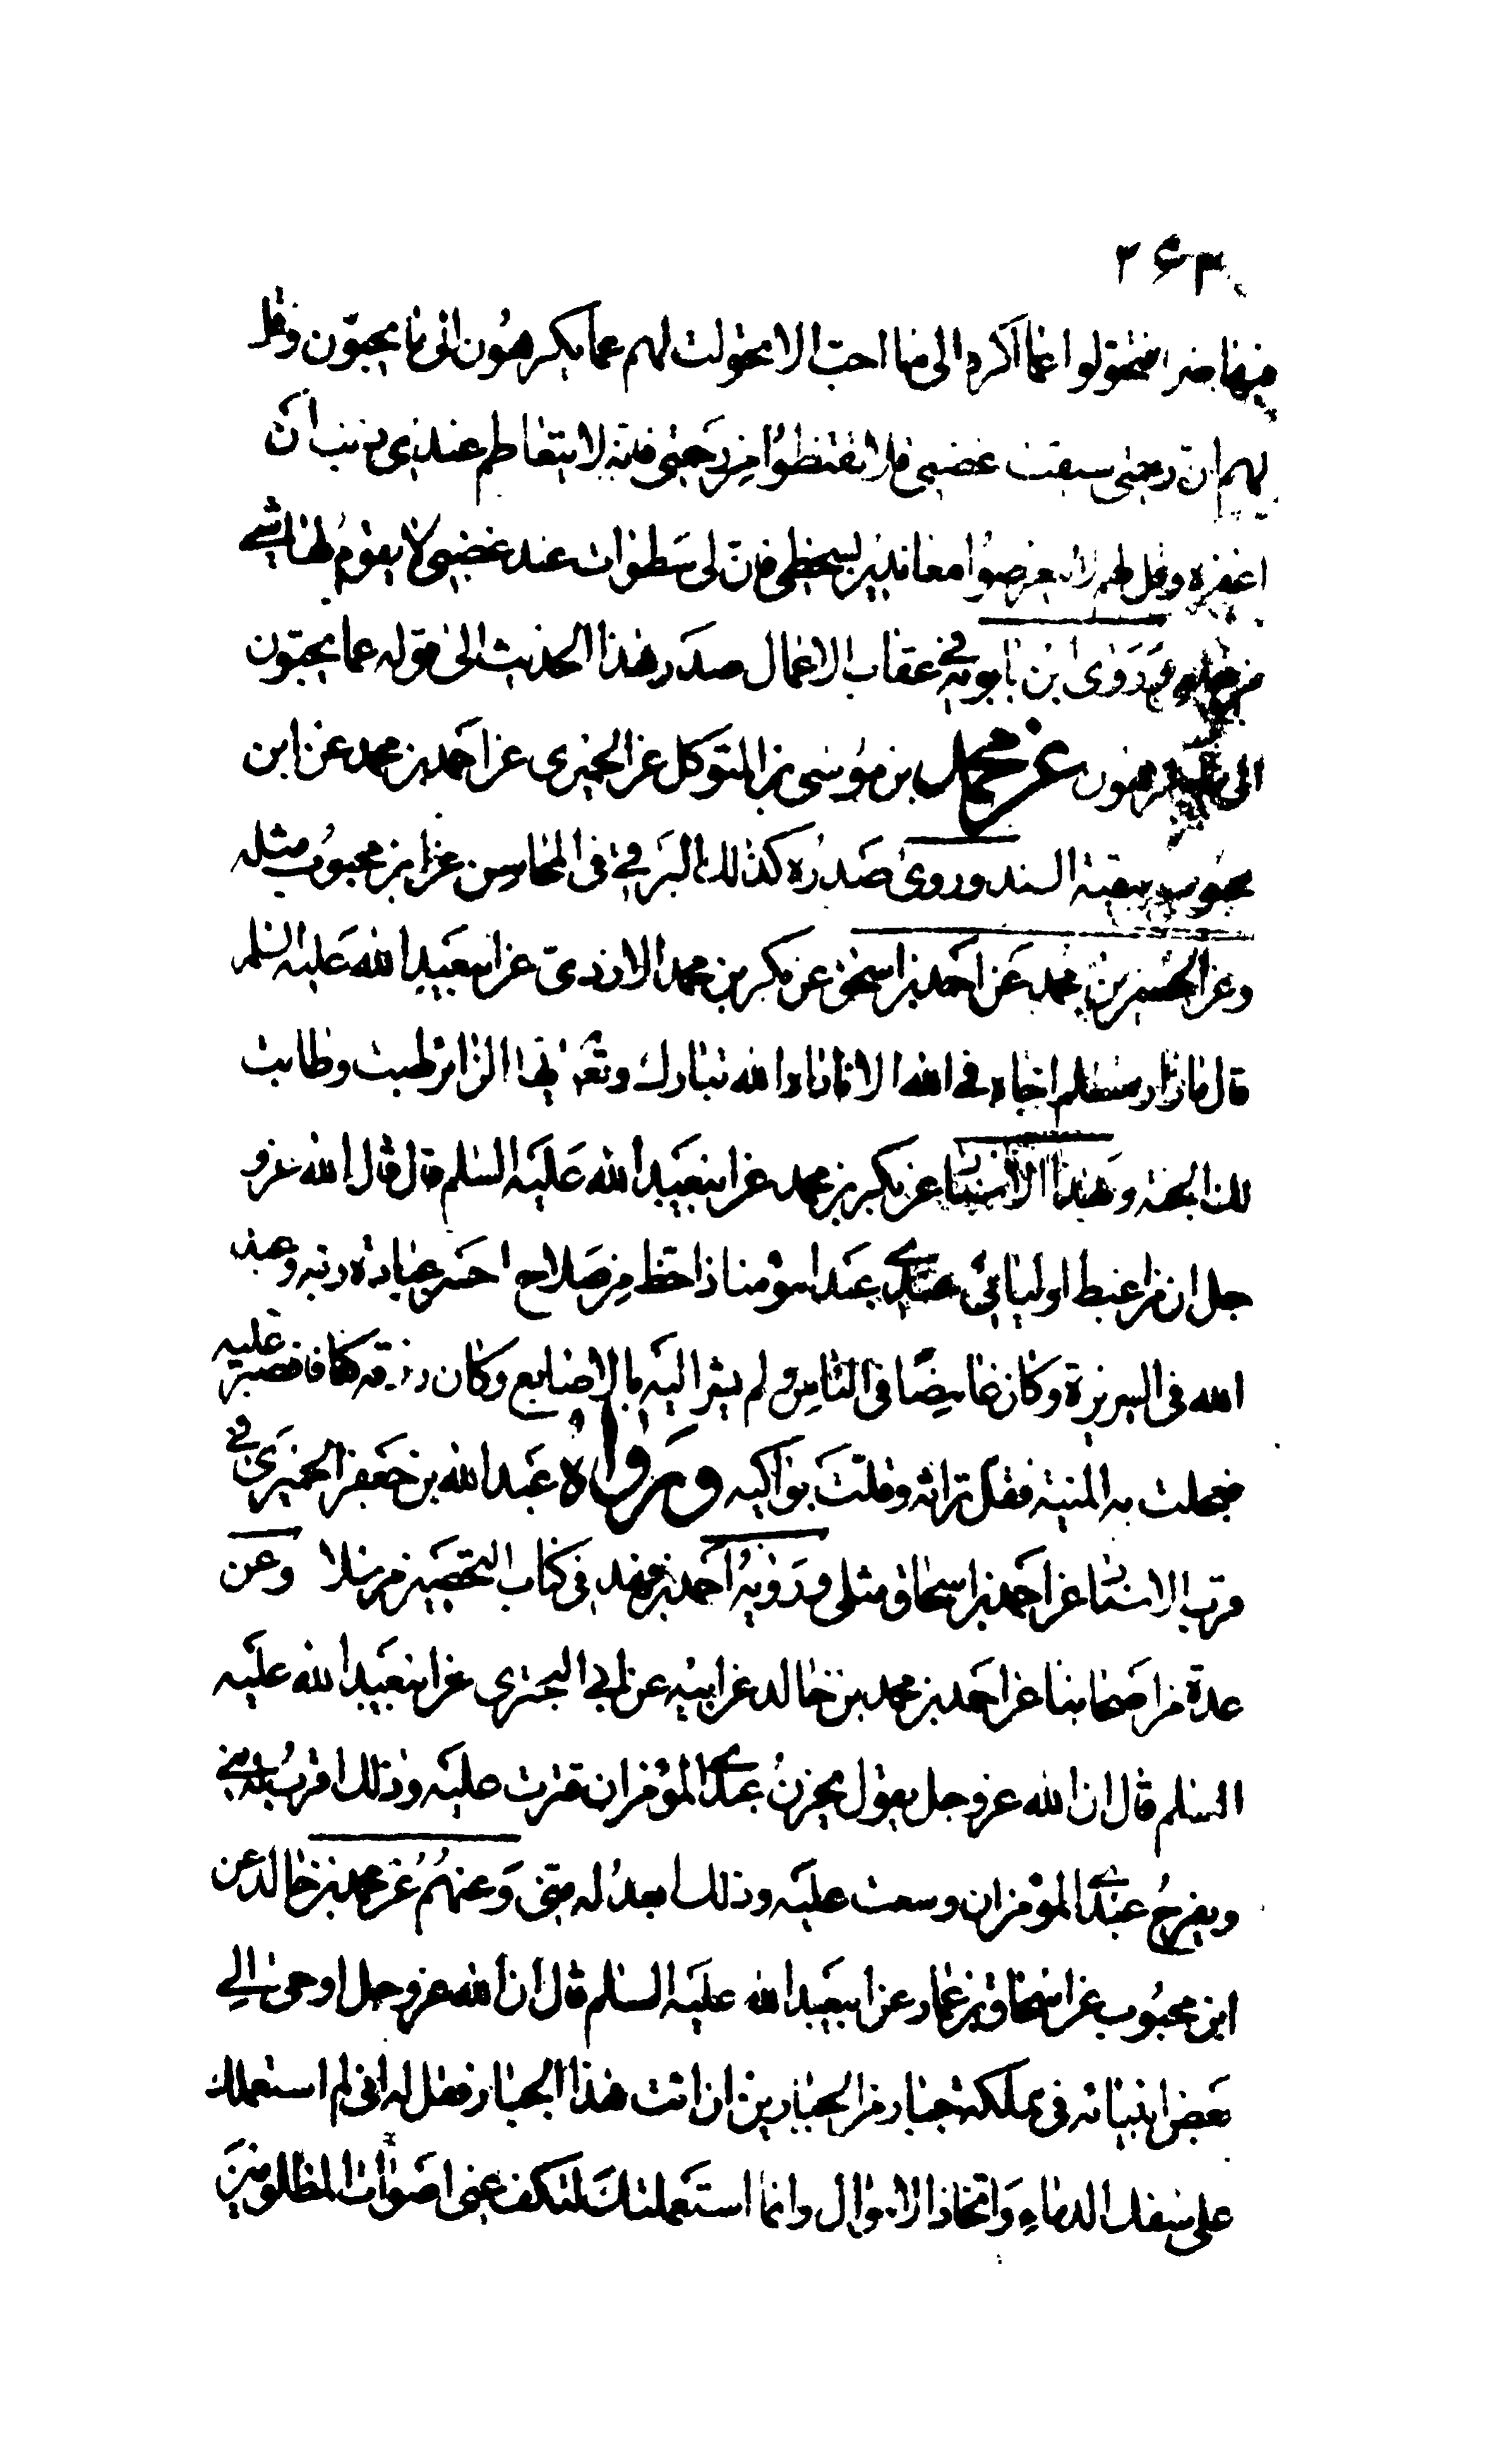 ٣۶٣
فيها ضراء فتحولوا عما اكره الى ما احب الا تحولت لهم عما يكرهون الى ما يحبون وقل
لهم ان رحمتى سبقت غضبى فلا تقنطوا من رحمتى فانه لا يتعاظم عندى ذنب ان
اغفره وقل لهم لا يتعرضوا معاندين لسخطى فان لى سطوات عند غضبى لا يقوم لها شىء
من خلقى وروى ابن بابويه فى عقاب الاعمال صدر هذا الحديث الى قوله عما يحبون
الى ما يكرهون عن محمد بن موسى بن المتوكل عن الحميرى عن احمد بن محمد عن ابن
محبوب ببقية السند وروى صدره كذلك البرقى فى المحاسن عن ابن محبوب مثله
وعن الحسين بن محمد عن احمد بن اسحق عن بكر بن محمد الازدى عن ابيعبد الله عليه السلم
قال ما زار مسلم اخاه فى الله الا ناداه الله تبارك وتعالى ايها الزائر طبت وطابت
لك الجنة وبهذا الاسناد عن بكر بن محمد عن ابيعبد الله عليه السلم قال قال الله عز و
جل ان من اغبط اوليائى عندى عبدا مؤمنا ذا حظ من صلاح احسن عبادة ربه وعبد
الله فى السريرة وكان غامضا فى الناس ولم يشر اليه بالاصابع وكان رزقه كفافا فصبر عليه
فعجلت به المنية فقل تراثه وقلت بواكيه ورواه عبد الله بن جعفر الحميرى فى
قرب الاسناد عن احمد بن اسحاق مثله ورويه احمد بن فهد فى كتاب التحصين مرسلا وعن
عدة من اصحابنا عن احمد بن محمد بن خالد عن ابيه عن ابى البخترى عن ابيعبد الله عليه
السلم قال ان الله عز وجل يقول يحزن عبدى المؤمن ان قترت عليه وذلك اقرب له منى
ويفرح عبدى المؤمن ان وسعت عليه وذلك ابعد له منى وعنهم عن محمد بن خالد عن
ابن محبوب عن اسحاق بن عمار عن ابيعبد الله عليه السلم قال ان الله عز وجل اوحى الى
بعض انبيائه فى مملكة جبار من الجبارين ان ائت هذا الجبار فقل له انى لم استعملك
على سفك الدماء واتخاذ الاموال وانما استعملتك لتكف عنى اصوات المظلومين